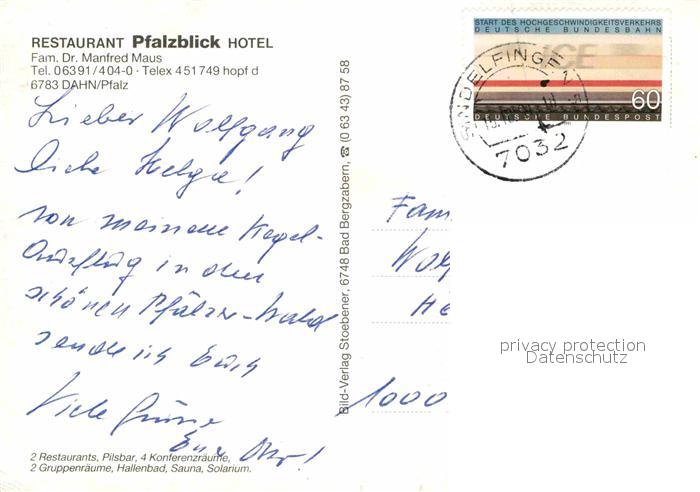 RESTAURANT Pfalzblick HOTEL
Fam. Dr. Manfred Maus
Tel. 06391/404-0 · Telex 451749 hopf d
6783 DAHN/Pfalz
Lieber Wolfgang
liebe Helga!
von meinem Kegel-
Ausflug in den
schönen Pfälzer-Wald
sende ich Euch
Viele Grüsse
Eur
2 Restaurants, Pilsbar, 4 Konferenzräume,
2 Gruppenräume, Hallenbad, Sauna, Solarium.
Bild-Verlag Stoebener, 6748 Bad Bergzabern, ☎ (0 63 43) 87 58
START DES HOCHGESCHWINDIGKEITSVERKEHRS
DEUTSCHE BUNDESBAHN
ICE
60
DEUTSCHE BUNDESPOST
SINDELFINGEN
7032
Fam
Wolf
He
1000
privacy protection
Datenschutz